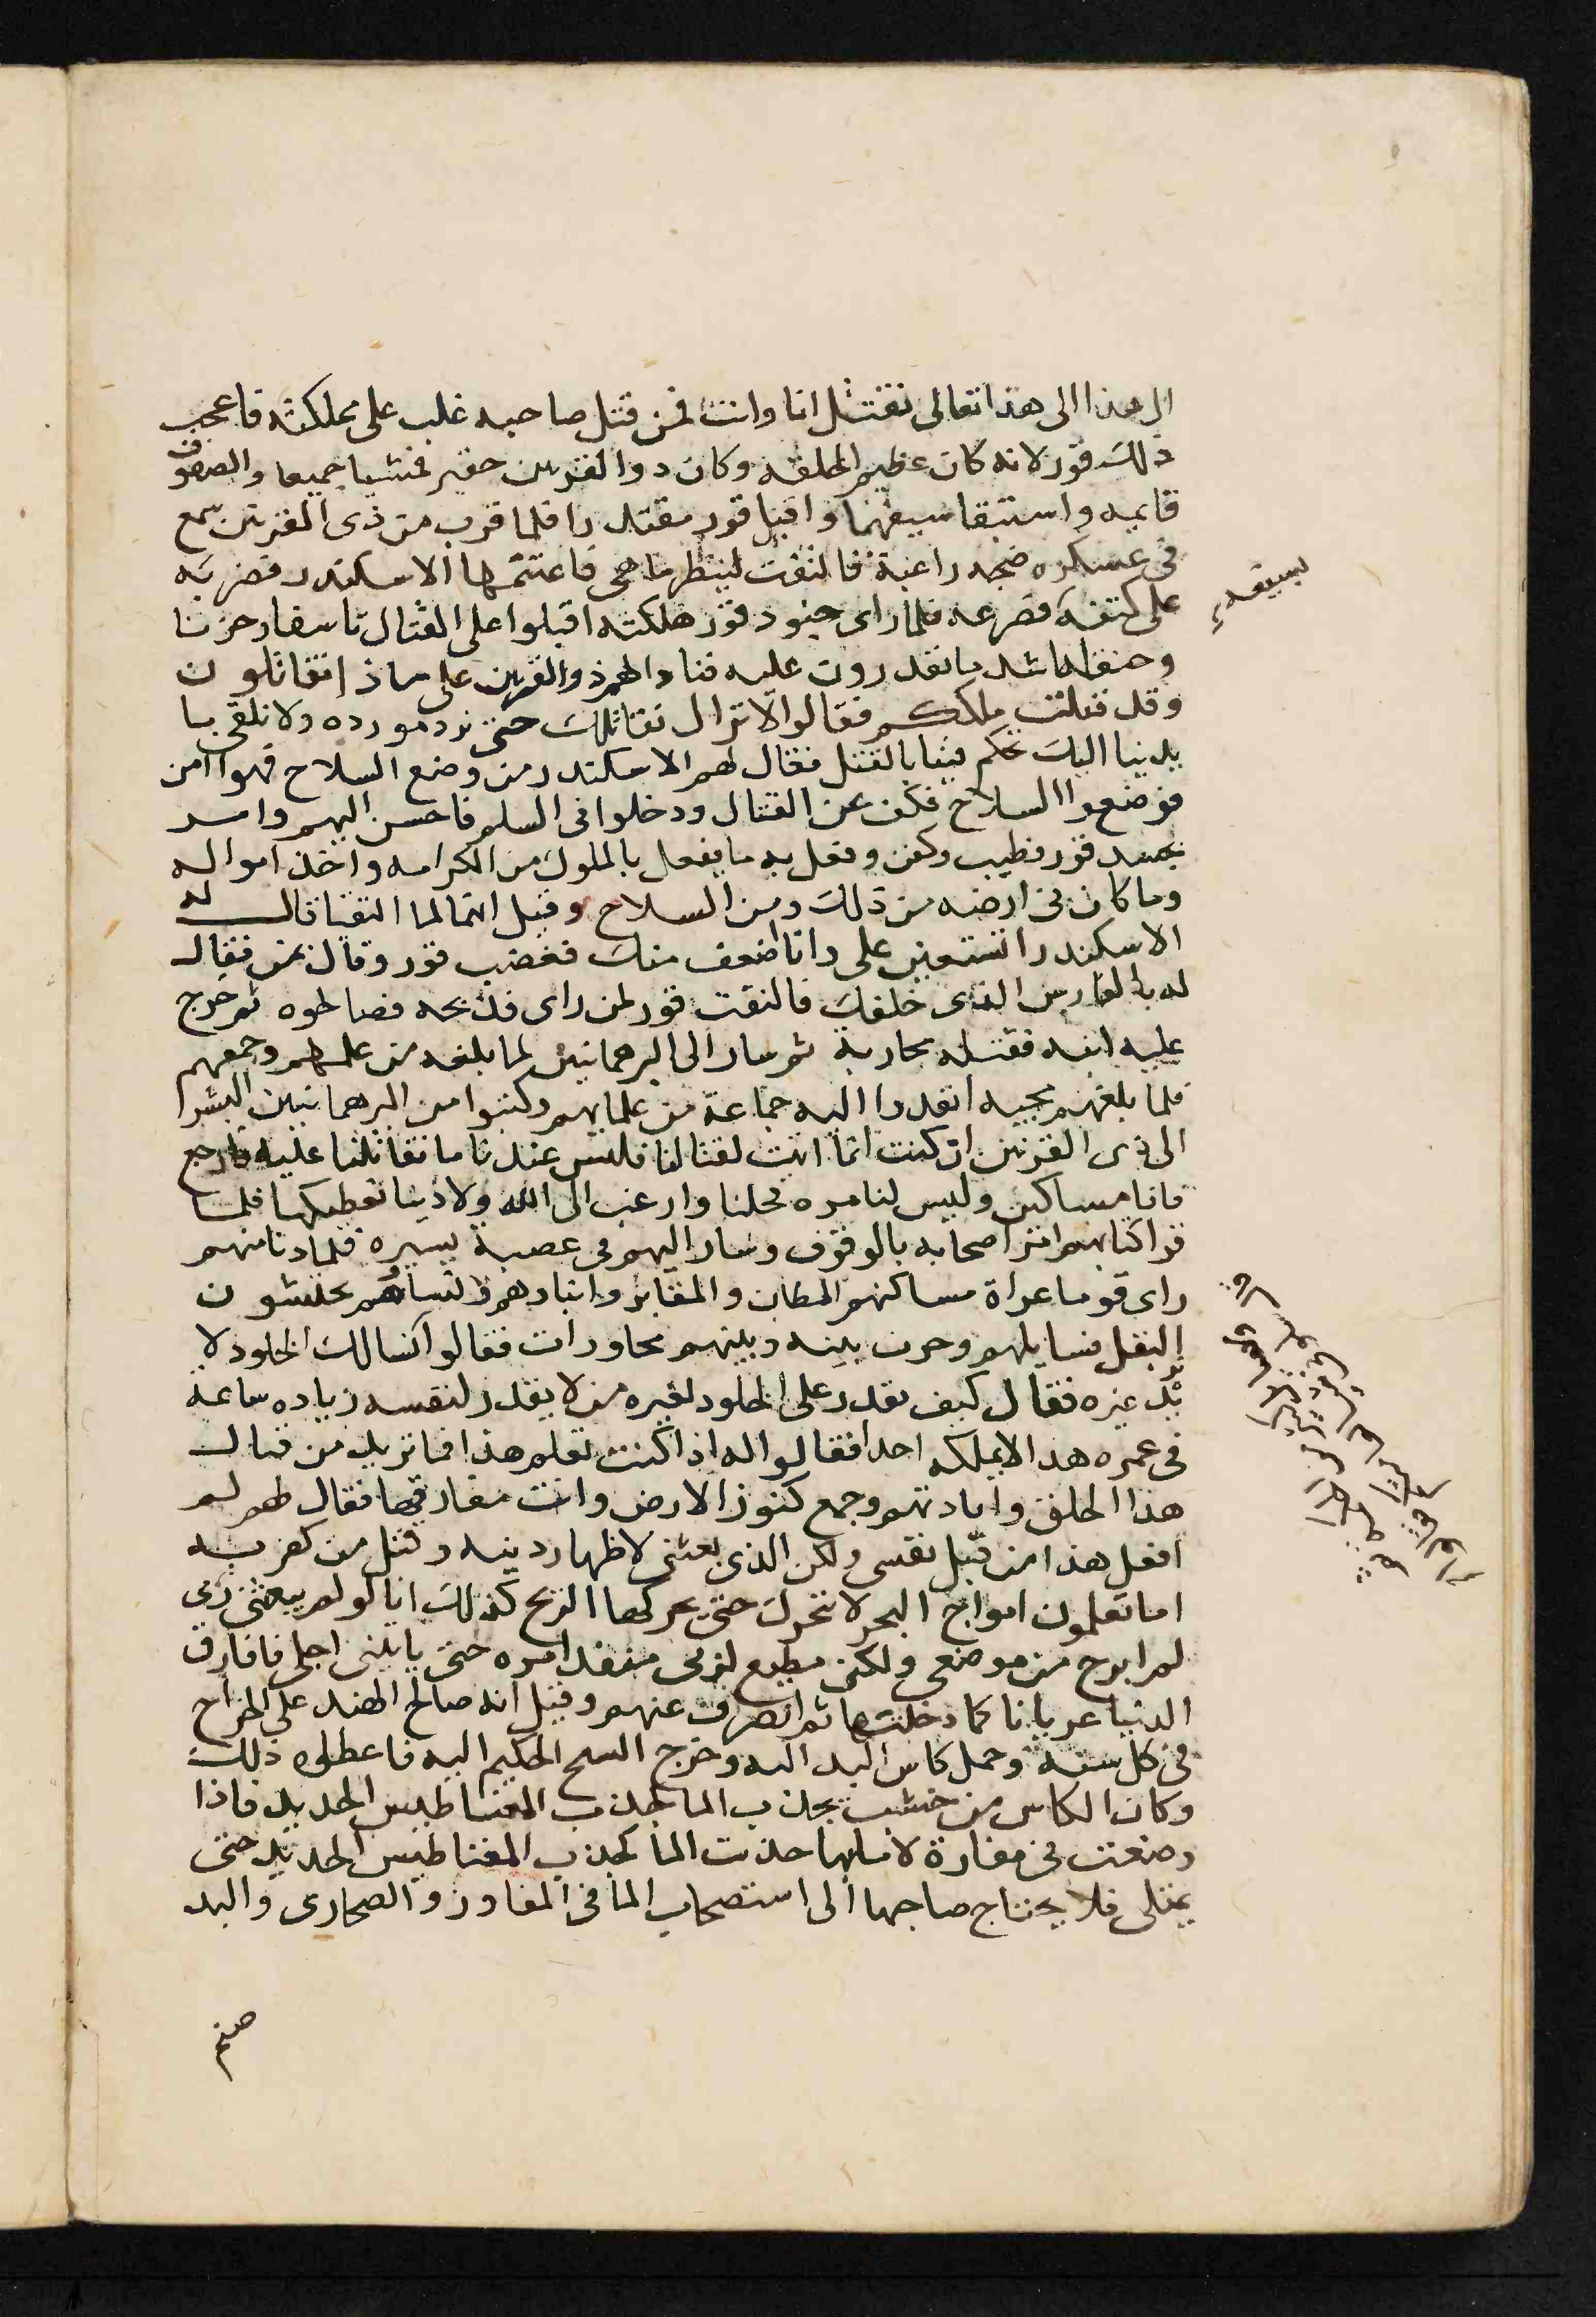 ال هذا الى هذا تعالى نقتتل انا وانت فمن قتل صاحبه غلب على مملكته فاعجب
ذلك فور لانه كان عظيم الخلقه وكان ذوالقرنين حقير فمشيا جميعا والصفوف
قايمه واستبقا سيفهما واقبل فور مقتدرا فلما قرب من ذى القرنين سمع
فى عسكره ضجه راعبة فالتفت لينظر ما هى فاغتنمها الاسكندر فضربه
بسيفه
على كتفه فصرعه فلما راى جنود فور هلكته اقبلوا على القتال تاسفا وحزنا
وحنقا اشد ما يقدرون عليه فناداهم ذوالقرنين على ماذا تقاتلون
وقد قتلت ملككم فقالوا لا نزال نقاتلك حتى نرد مورده ولا نلقى با
يدينا اليك تحكم فينا بالقتل فقال لهم الاسكندر من وضع السلاح فهو امن
فوضعوا السلاح فكف عن القتال ودخلوا فى السلم فاحسن اليهم وامر
بجسد فور فطيب وكفن وفعل به ما يفعل بالملوك من الكرامه واخذ امواله
وما كان فى ارضه من ذلك ومن السلاح وقيل انهما لما التقيا قال له
الاسكندر اتستعين على وانا اضعف منك فغضب فور وقال بمن فقال
له بالفارس الذى خلفك فالتفت فور لمن راى فذبحه فصالحوه ثم خرج
عليه ابنه فقتله محاربة ثم سار الى البرهمانيين لما بلغه من علمهم وجمعهم
فلما بلغهم مجيه انفدوا اليه جماعة من علمايهم وكتبوا من البرهمانيين البشرا
الى ذى القرنين ان كنت انما اتيت لقتالنا فليس عندنا ما تقاتلنا عليه فارجع
فانا مساكين وليس لنا مره فخلنا وارغب الى الله ولا دينا نعطيكها فلما
قرا كتابهم امر اصحابه بالوقوف وسار اليهم فى عصبة يسيره فلما دنا منهم
راى قوما عراة مساكنهم المطان والمقابر وابناوهم ونساوهم يحتشون
البقل فسايلهم وجرت بينه وبينهم محاورات فقالوا انسالك الخلود لا
نريد غيره فقال كيف يقدر على الخلود لغيره من لا يقدر لنفسه زياده ساعة
فى عمره هذا لا يملكه احدا فقالوا له اذا كنت تعلم هذا فما تريد من قتال
هذا الخلق وابادتهم وجمع كنوز الارض وانت مفارقها فقال لهم لم
افعل هذا من قبل نفسى ولكن الذى بعثنى لاظهار دينه وقتل من كفر به
اما تعلمون امواج البحر لا تتحرك حتى تحركها الريح كذلك انا لو لم يبعثنى ربى
لم ابرح من موضعى ولكنى مطيع لربى منفد امره حتى ياتينى اجلى فافارق
الدنيا عريانا كما دخلتها ثم انصرف عنهم وقيل انه صالح الهند على الخراج
فى كل سنة وحمل كاس البد اليه وخرج السح الحكيم اليه فاعطاه ذلك
وكان الكاس من خشب يجذب الما كجذب المغناطيس الحديد فاذا
وضعت فى مفازة لا ما بها جذبت الما كجذب المغناطيس الحديد حتى
يمتلى فلا يحتاج صاحبها الى استصحاب الما فى المفاوز والصحارى والبد
صنم